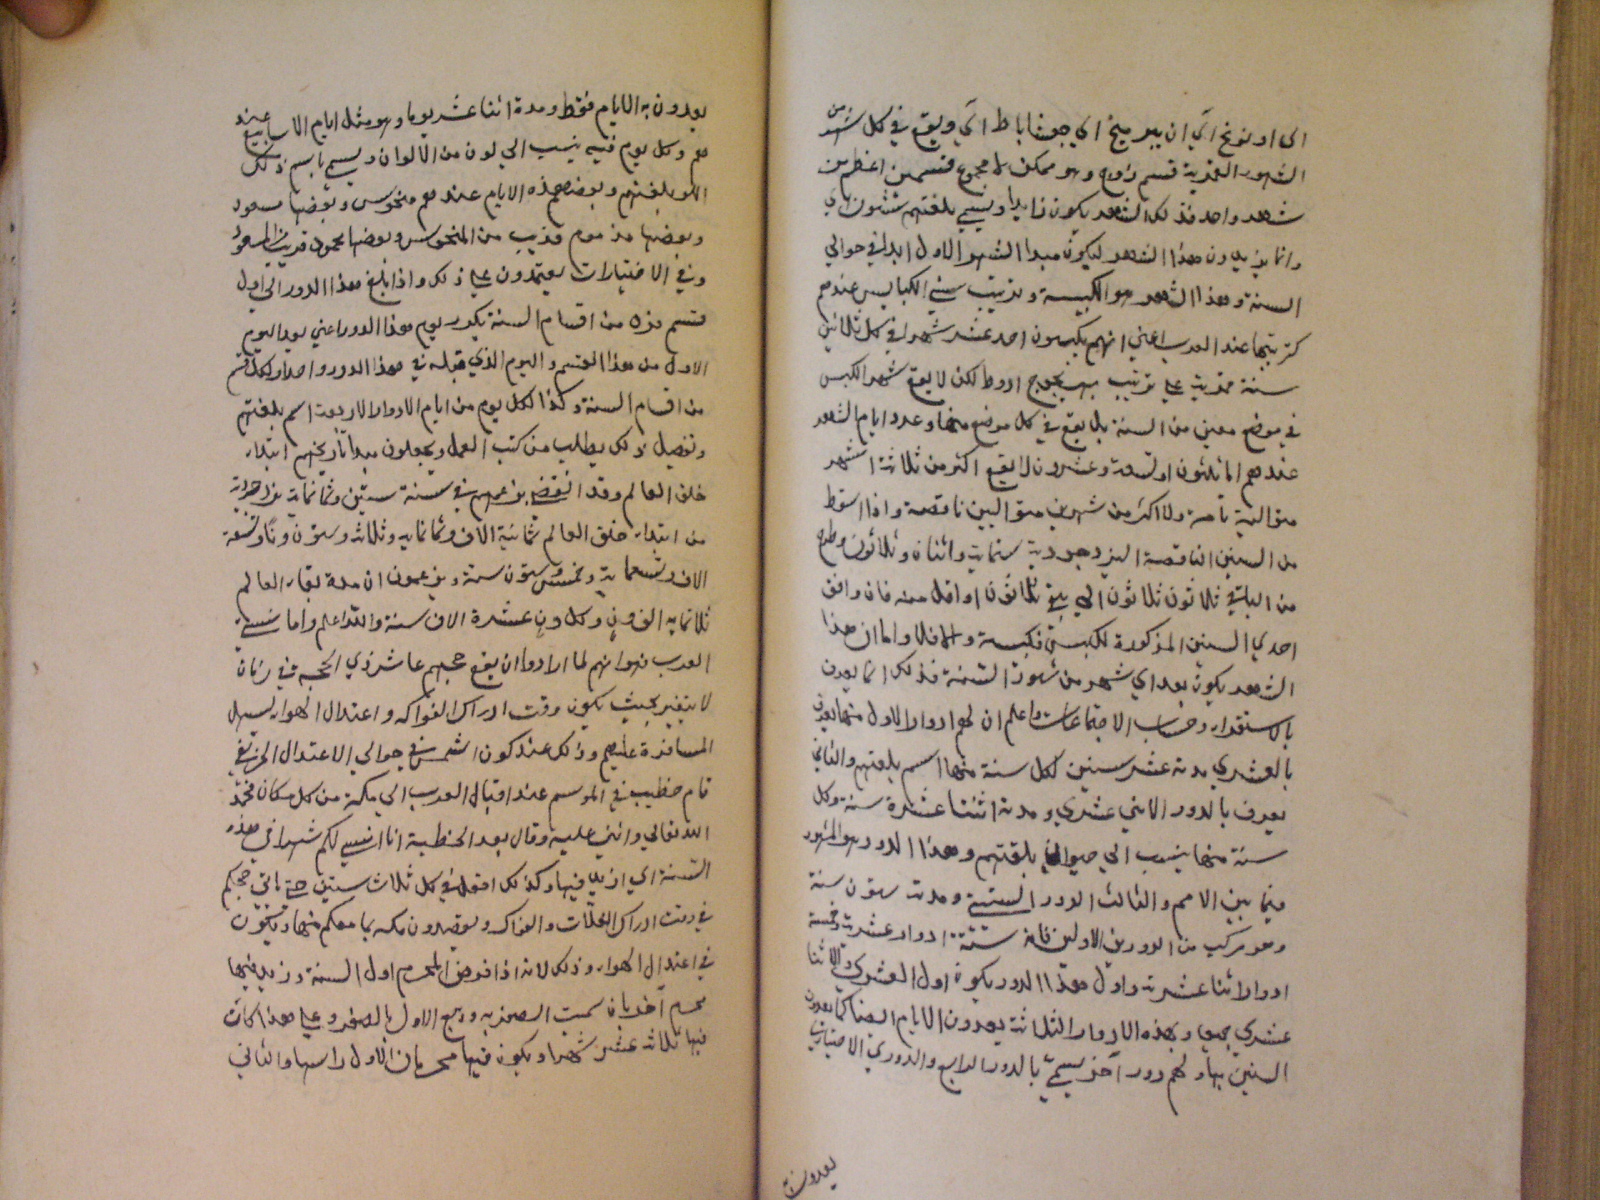 الى اونونج آي ان بير ميخ اي جغشاباط آي ويقع في كل شهر من
الشهور القمرية قسم زوج وهو ممكن لا مجموع قسمين اعظم من
شهر واحد فذلك الشهر يكون زايدا ويسمى بلغتهم شون اي
وانما يزيدون هذا الشهر ليكون مبدا الشهر الاول ابدا في حوالي
السنة وهذا الشهر هو الكبيسة وترتيب سني الكبايس عندهم
كترتيبها عند العرب اعني انهم يكبسون احد عشر شهرا في كل ثلاثين
سنة قمرية على ترتيب بهزيجوح ادوط لكن لا يقع شهر الكبس
في موضع معين من السنة بل يقع في كل موضع منها وعدد ايام الشهر
عندهم اما ثلثون او تسعة وعشرون لا يقع اكثر من ثلاثة اشهر
متوالية تامة ولا اكثر من شهرين متواليين ناقصة واذا اسقط
من السنين الناقصة اليزدجردية ستماية واثنان وثلاثون وطرح
من الباقي ثلاثون ثلاثون الى يبقى ثلاثون او اقل منه فان وافق
احدي السنين المذكورة للكبس فكبيسة والا فلا واما ان هذا
الشهر يكون بعد اي شهر من شهور السنة فذلك انما يعرف
بالاستقراء وحساب الاجتماعات واعلم ان لهم ادوارا الاول منها يعرف
بالعشري مدته عشر سنين لكل سنة منها اسم بلغتهم والثاني
يعرف بالدور الاثني عشري ومدته اثنتا عشرة سنة وكل
سنة منها ينسب الى حيوان بلغتهم وهذا الدور هو المشهور
فيما بين الامم والثالث الدور الستيني ومدته ستون سنة
وهو مركب من الدورين الاولين فانه ستة ادوار عشرية وخمسة
ادوار اثنا عشرية واول هذا الدور يكون اول العشري والاثنا
عشري جميعا وبهذه الادوار الثلاثة يعدون الايام ايضا كما يعدون
السنين بها ولهم دور آخر يسمى بالدور الرابع والدور الاختياري
يعدون به
يعدون به الايام فقط ومدة اثنا عشر يوما وهو مثل ايام الاسابيع عند
هم وكل يوم فيه ينسب الى لون من الالوان ويسمى باسم ذلك
اللون بلغتهم وبعض هذه الايام عندهم منحوس وبعضها مسعود
وبعضها مذموم قريب من المنحوس وبعضها محمود قريب من المسعود
وفي الاختيارات يعتمدون على ذلك واذا بلغ هذا الدور الى اول
قسم فرد من اقسام السنة يكرر يوم هذا الدور اعني يعد اليوم
الاول من هذا القسم واليوم الذي قبله في هذا الدور واحدا ولكل قسم
من اقسام السنة وكذا لكل يوم من ايام الادوار الاربعة اسم بلغتهم
وتفصيل ذلك يطلب من كتب العمل ويجعلون مبدا تاريخهم ابتداء
خلق العالم وقد انقضى بزعمهم في سنة ستين وثمانماية يزدجردية
من ابتداء خلق العالم ثمانية الاف وثمانمايه وثلاثه وستون ونا وتسعة
الاف وتسعماية وخمس ستون سنة ويزعمون ان مدة بقاء العالم
ثلاثمايه الف ون وكل ون عشرة الاف سنة والله اعلم واما نسيء
العرب فهو انهم لما ارادوا ان يقع حجهم عاشر ذي الحجه في زمان
لا يتغير بحيث يكون وقت ادراك الفواكه واعتدال الهواء ليسهل
المسافرة عليهم وذلك عند كون الشمس في حوالي الاعتدال الخريفي
قام خطيب في الموسم عند اقبال العرب الى مكة من كل مكان فحمد
الله تعالى واثنى عليه وقال بعد الخطبة انا انسئ لكم شهرا في هذه
السنة اي ازيد فيها وكذلك افعل في كل ثلاث سنين حتى ياتي حجكم
في وقت ادراك الغلات والفواكه ويقصدون مكه بما معكم منها ويكون
في اعتدال الهواء وذلك لانه اذا فرض المحرم اول السنة وزيد فيها
محرم آخر بان سميت الصفر به وربيع الاول بالصفر وعلى هذا كانت
فيها ثلاثه عشر شهرا ويكون فيها محرمان الاول راسها والثاني